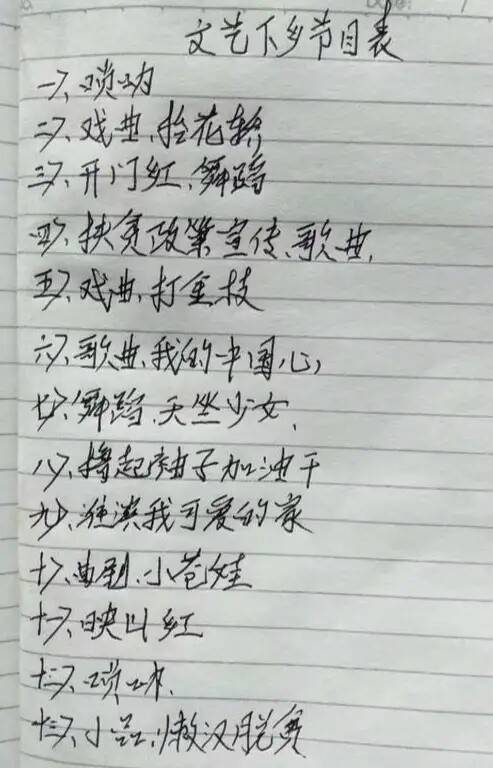 文艺下乡节目表
一、唢呐
二、戏曲、抬花轿
三、开门红、舞蹈
四、扶贫政策宣传、歌曲、
五、戏曲、打金枝
六、歌曲、我的中国心
七、舞蹈、天坐少女、
八、撸起袖子加油干
九、淮滨我可爱的家
十、曲剧、小苍娃
十一、映山红
十二、唢呐、
十三、小品、懒汉脱贫